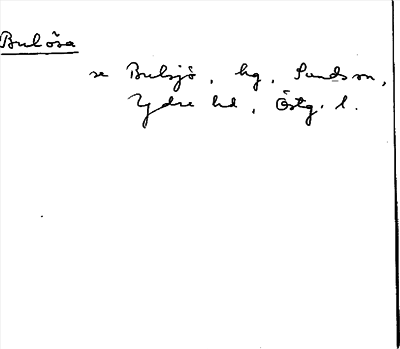 Bulösa
se Bulsjö, hg, Sunds sn,
Ydre hd, Östg. l.